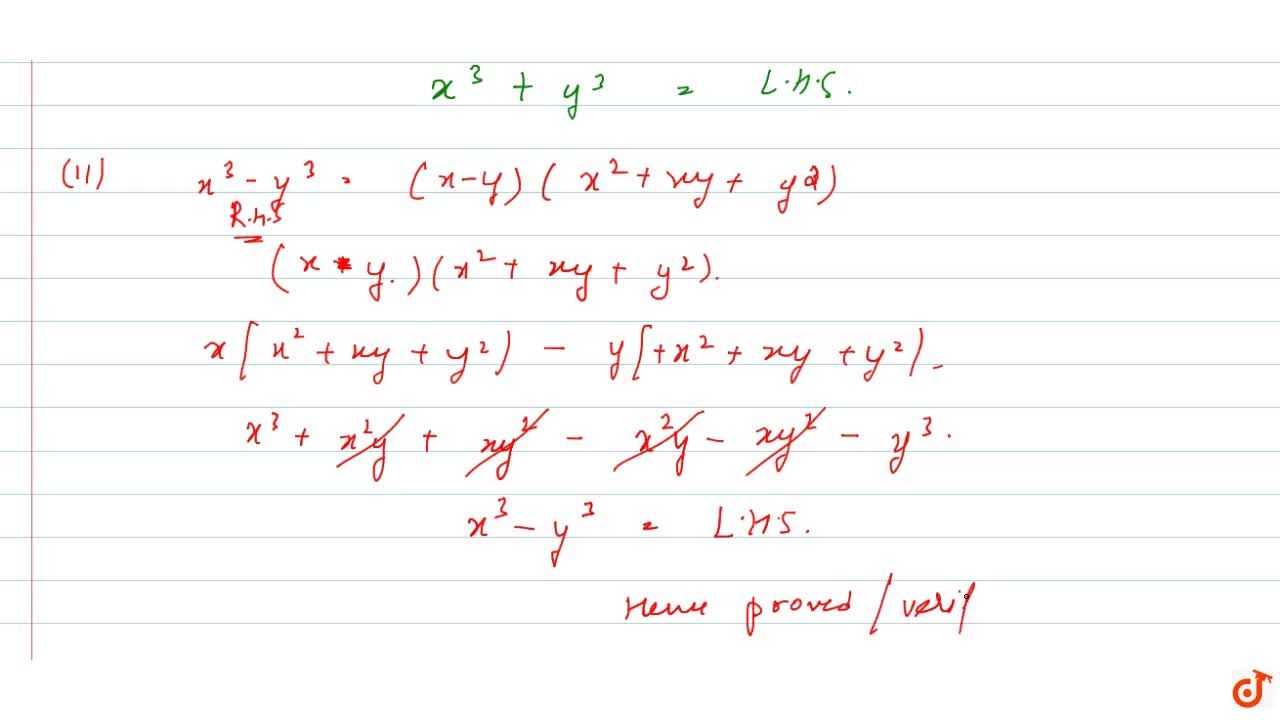 x³ + y³ = L.H.S.
(11) x³ - y³ = (x-y) ( x² + xy + y2)
R.H.S
(x - y.) (x² + xy + y²).
x [ x² + xy + y²) - y [+x² + xy + y²) -
x³ + x²y + xy² - x²y - xy² - y³.
x³ - y³ = L.H.S.
Hence proved / veri